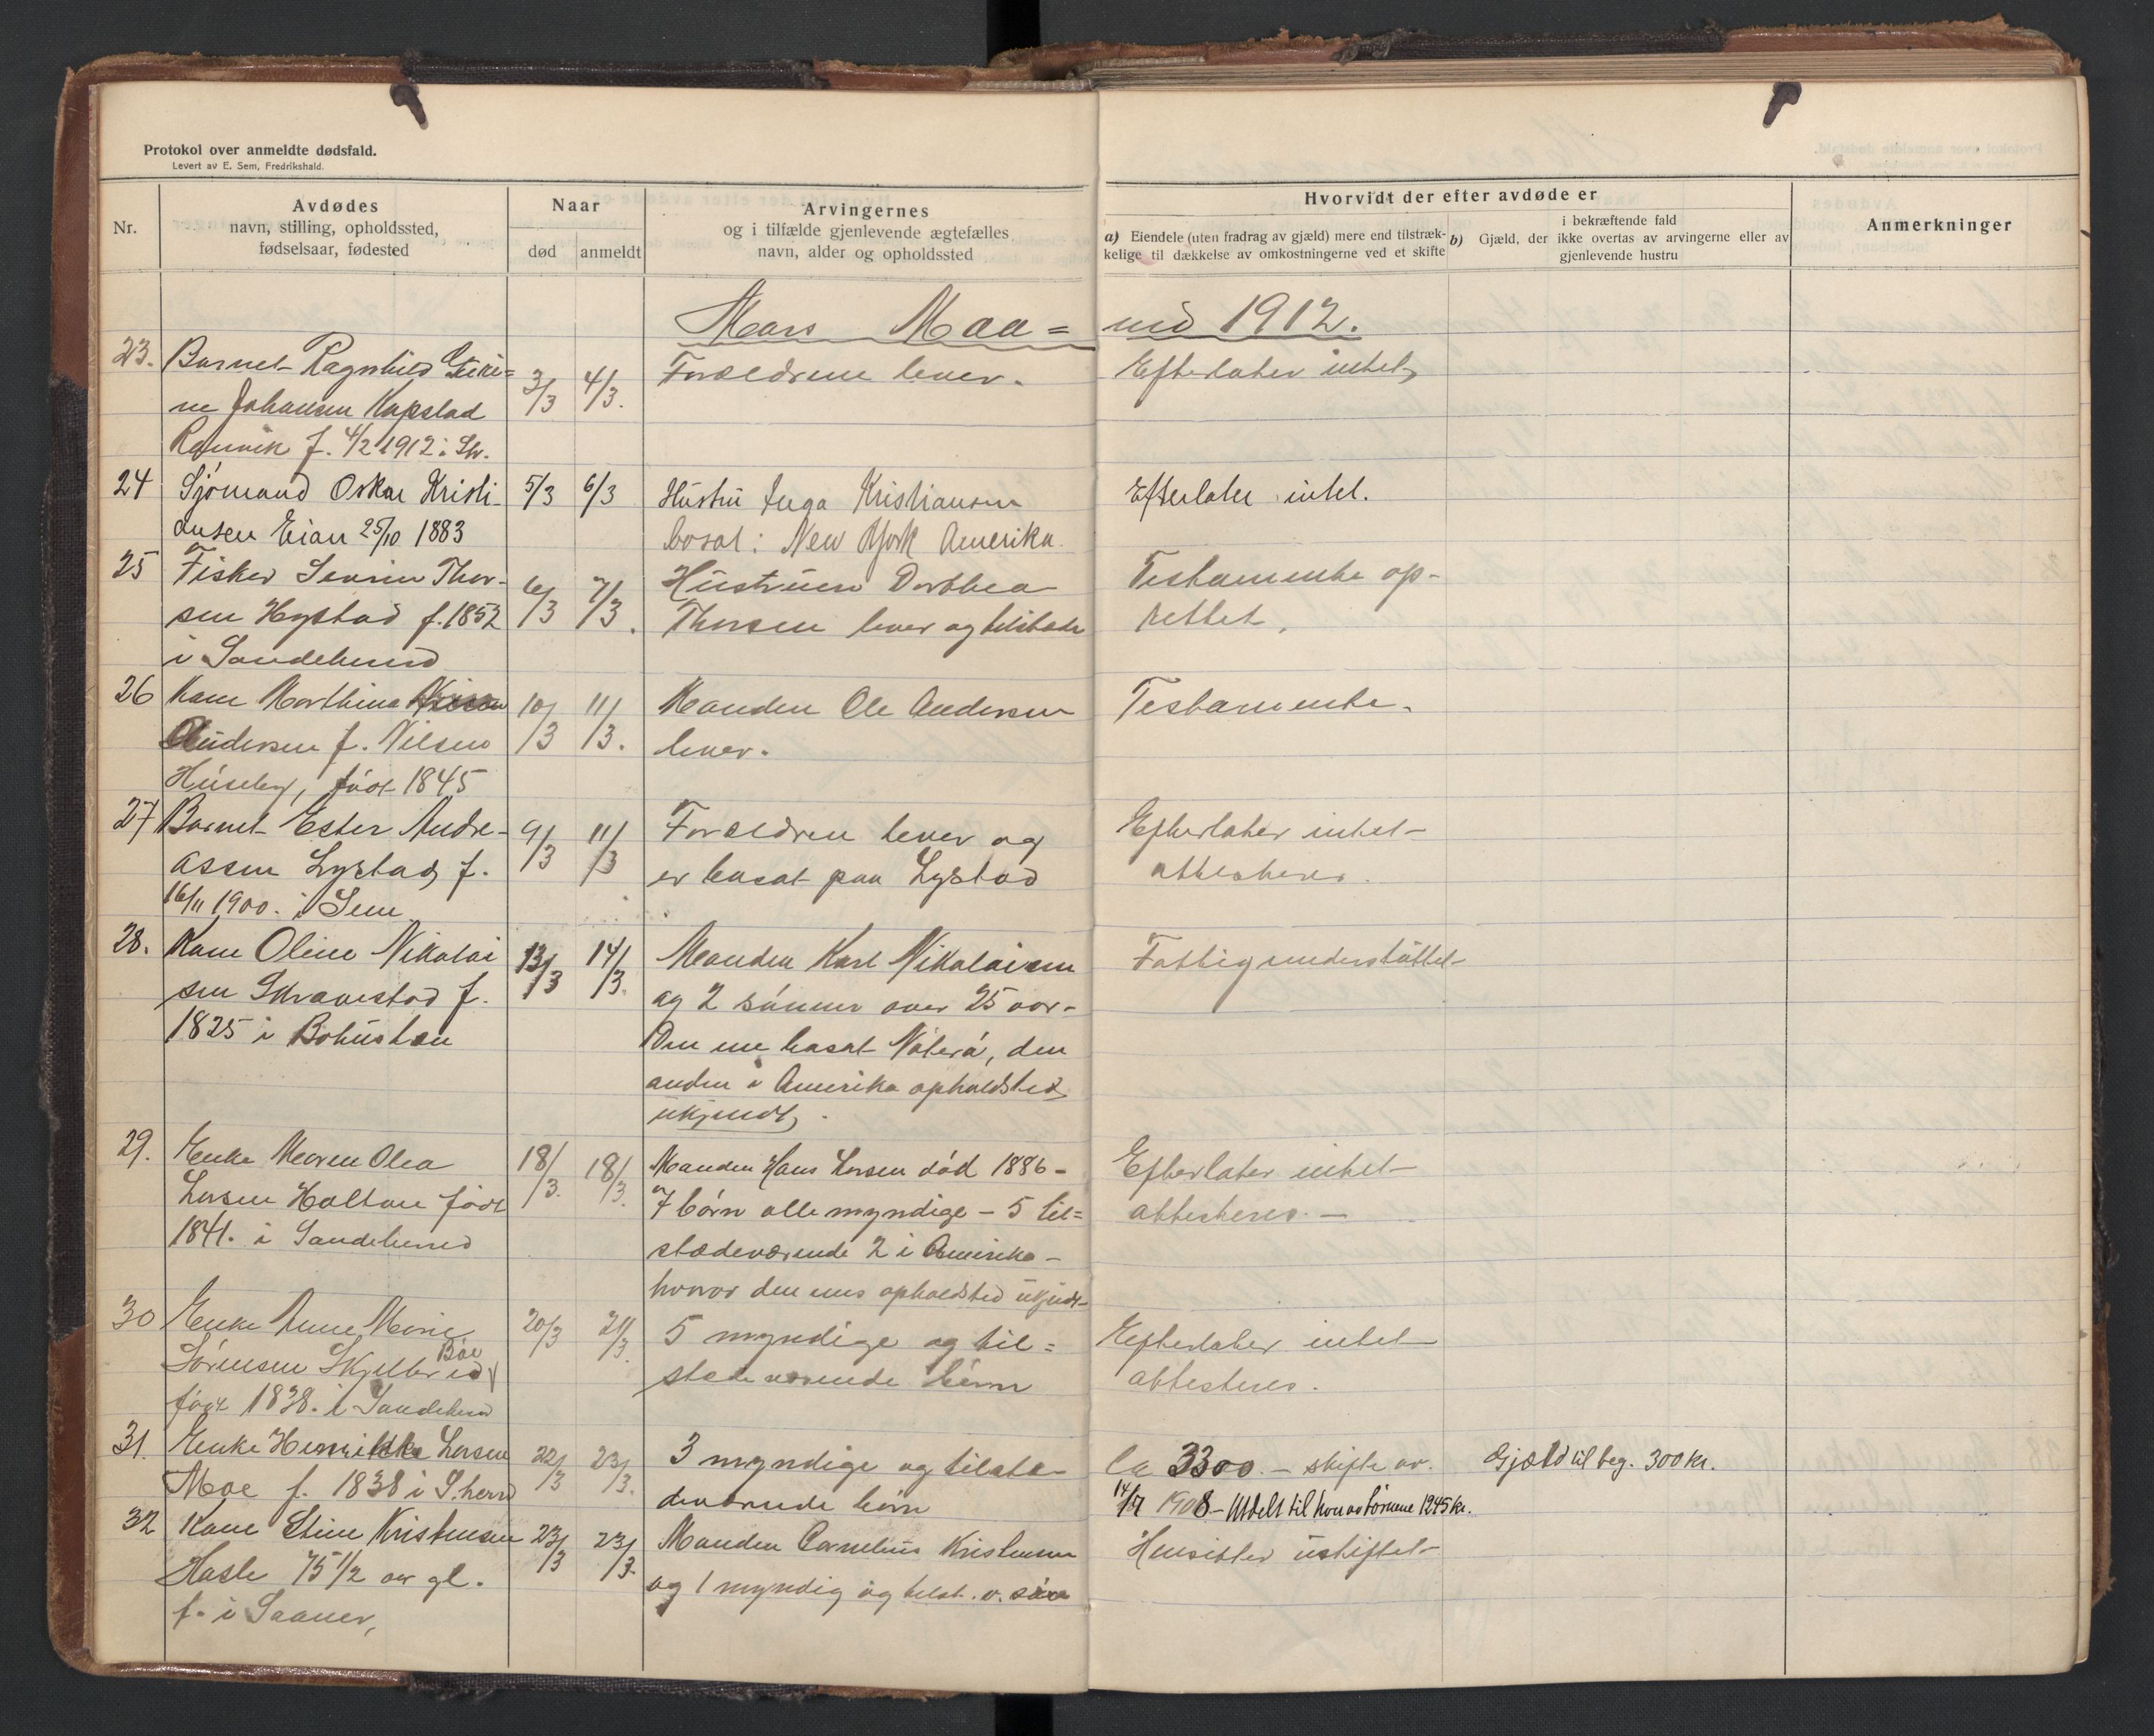 Protokol over anmeldte dødsfald.
Levert av E. Sem, Fredrikshald.
Nr.
Avdødes
navn, stilling, opholdssted,
fødselsaar, fødested
Naar
død
anmeldt
Arvingernes
og i tilfælde gjenlevende ægtefælles
navn, alder og opholdssted
Hvorvidt der efter avdøde er
a) Eiendele (uten fradrag av gjæld) mere end tilstræk-
kelige til dækkelse av omkostningerne ved et skifte
i bekræftende fald
b) Gjæld, der ikke overtas av arvingerne eller av
gjenlevende hustru
Anmerkninger
Mars Maa= ned 1912.
23. Barnet Ragnhild
ne Johansen Kapstad
Ranvik f. 4/2 1912 i Shr.
3/3 4/3.
Forældrene lever.
Efterlater intet
24 Sjømand Oskar Kristi-
ansen Eian 25/10 1883
5/3 6/3
Hustru Inga Kristiansen
bosat: New York Amerika
Efterlater intet.
25 Fisker Severin Thor-
sen Hystad f. 1852
i Sandeherred
6/3 7/3.
Hustruen Dorthea
Thorsen lever og tilstede
Testamente op-
rettet.
26 Kone Marthina
Andersen f. Nilsen
Huseby, født 1845
10/3 11/3.
Manden Ole Andersen
lever.
Testamente.
27 Barnet Ester Andre-
assen Lystad f.
16/11 1900. i Sem
9/3 11/3
Forældren lever og
er bosat paa Lystad
Efterlater intet
attesteres.
28. Kone Oline Nikolai
sen Skravestad f.
1825 i Bohuslæn
13/3 14/3.
Manden Karl Nikolaisen
og 2 sønner over 25 aar-
Den ene bosat Nøterø, den
anden i Amerika opholdsted
ukjendt.
Fattigunderstøttet
29. Enke Maren Olea
Larsen Haltan født
1841. i Sandeherred
18/3. 18/3.
Manden Hans Larsen død 1886 -
7 børn alle myndige - 5 til=
stædeværende 2 i Amerika -
hvorav den enes opholdsted ukjendt
Efterlater intet
attesteres. -
30 Enke Anne Marie
Sørensen Skjelbred Bøe
født 1838. i Sandeherred
20/3 21/3.
5 myndige og til=
stedeværende børn
Efterlater intet
attesteres.
31. Enke Henrikke Larsen
Moe f. 1838 i S.herred
22/3 23/3.
3 myndige og tilste-
deværende børn
Ca 3300. - skifte av.
14/7 1908 - Utdelt til hver av børnene 1245 kr.
Gjæld til beg. 300 kr.
32 Kone Stine Kristensen
Hasle 75 1/2 aar gl.
f. i Saaner,
23/3 23/3.
Manden Cornelius Kristensen
og 1 myndig og tilst. v. søn
Hensitter uskiftet